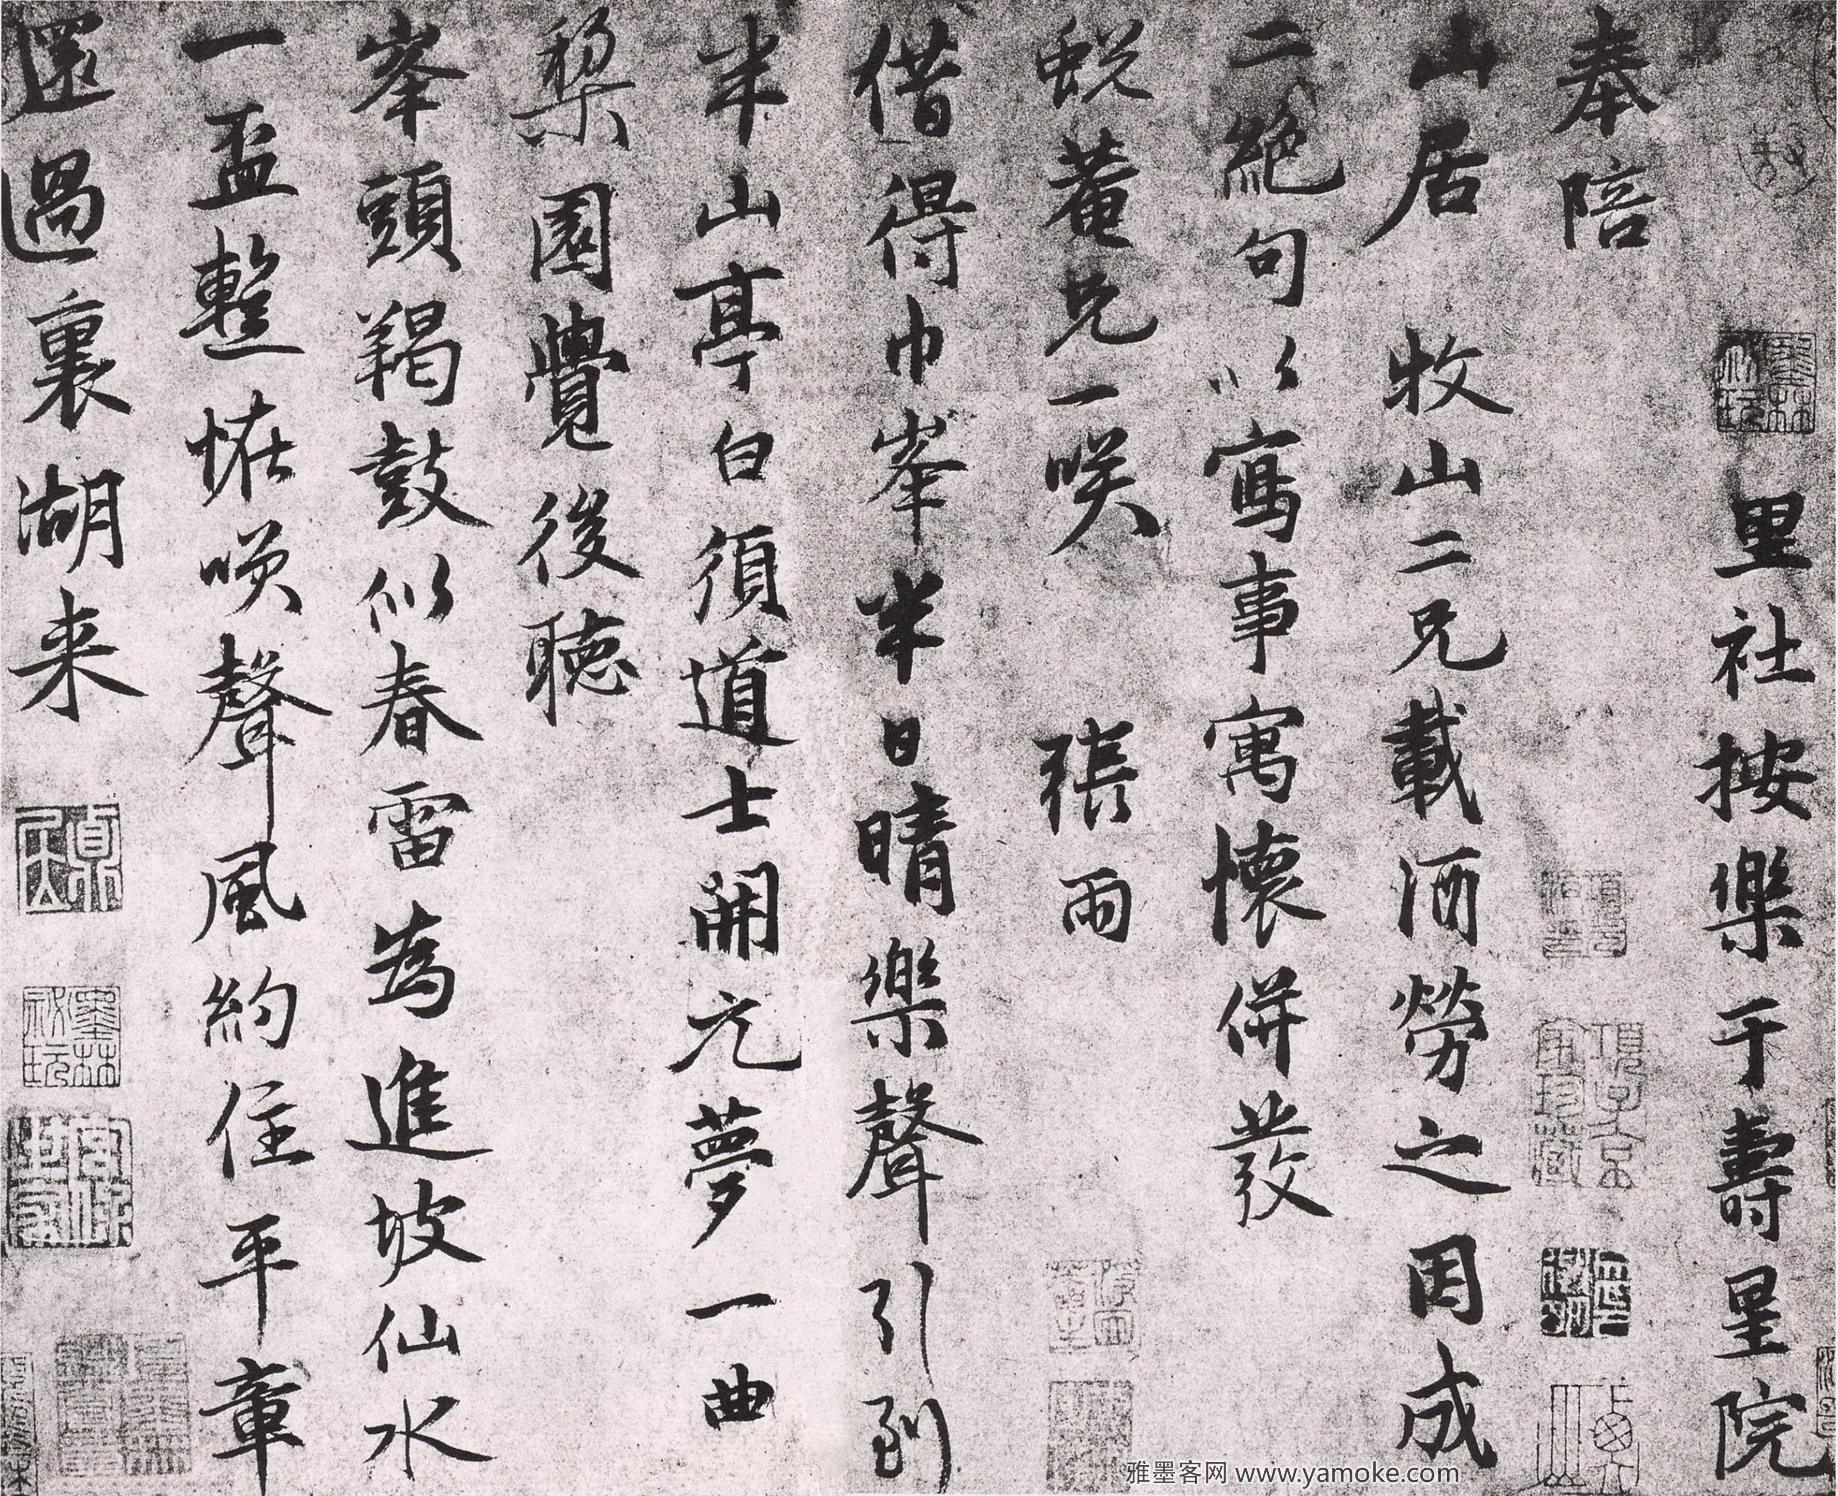 里社按樂于壽星院
奉陪
山居 牧山二兄載酒勞之因成
二絶句以寫事寓懷併發
蜕菴兄一咲 張雨
借得巾峯半日晴樂聲引到
半山亭白須道士開元夢一曲
棃園覺後聽
峯頭羯鼓似春雷為進坡仙水
一盃整恠喚聲風約住平章
還過裏湖来
雅墨客网 www.yamoke.com